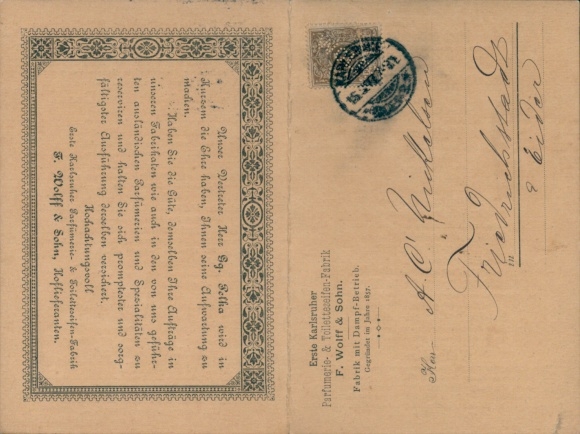 Unser Vertreter Herr Gg. Felka wird in
Kurzem die Ehre haben, Ihnen seine Aufwartung zu
machen.
Haben Sie die Güte, demselben Ihre Aufträge in
unseren Fabrikaten wie auch in den von uns geführ-
ten ausländischen Parfümerien und Spezialitäten zu
reserviren und halten Sie sich promptester und sorg-
fältigster Ausführung derselben versichert.
Hochachtungsvoll
Erste Karlsruher Parfümerie- & Toiletteseifen-Fabrik
F. Wolff & Sohn, Hoflieferanten.
Erste Karlsruher
Parfumerie- & Toiletteseifen-Fabrik
F. Wolff & Sohn.
Fabrik mit Dampf-Betrieb.
Gegründet im Jahre 1857.
Herrn
A. C.
in
Friedrichstadt
a Eider